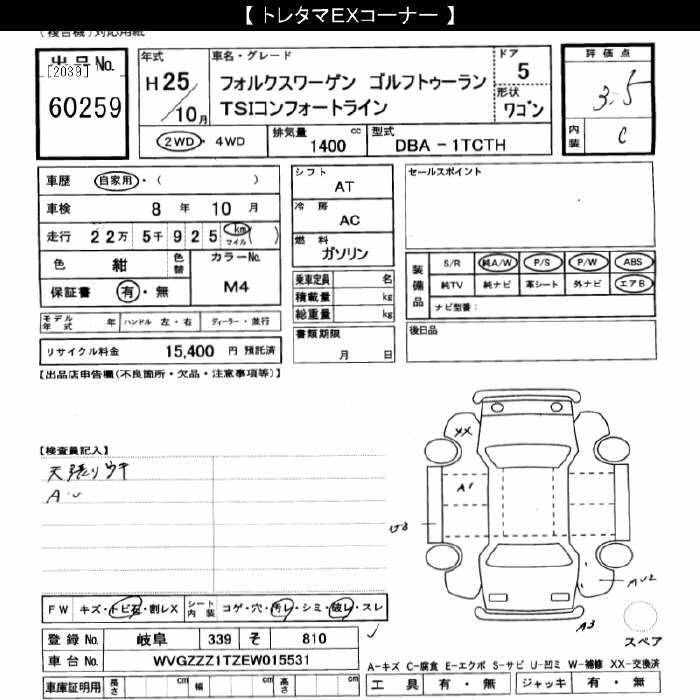 【 トレタマEXコーナー 】
(複合機)対応用紙
出品No.
[2039]
60259
年式
H25
10月
車名・グレード
フォルクスワーゲン ゴルフトゥーラン
TSIコンフォートライン
ドア
5
形状
ワゴン
評価点
3.5
内装
C
2WD・4WD
排気量
1400 cc
型式
DBA - 1TCTH
車歴 自家用・( )
車検 8年 10月
走行 22万 5千925 km マイル( )
色 紺 色替
カラーNo.
M4
保証書 有・無
シフト
AT
冷房
AC
燃料
ガソリン
セールスポイント
装備品
S/R 純A/W P/S P/W ABS
純TV 純ナビ 革シート 外ナビ エアB
ナビ型番:
乗車定員 名
積載量 kg
総重量 kg
モデル年式 年 ハンドル 左・右 ディーラー・並行
書類期限
月 日
後日品
リサイクル料金 15,400 円 預託済
【出品店申告欄(不良箇所・欠品・注意事項等)】
【検査員記入】
天張りウキ
XX
A1
U3
AU2
A3
スペア
FW キズ・トビ石・割レX シート内装 コゲ・穴・汚レ・シミ・破レ・スレ
登録No. 岐阜 339 そ 810
車台No. WVGZZZ1TZEW015531
車庫証明用 長さ cm 幅 cm 高さ cm
A-キズ C-腐食 E-エクボ S-サビ U-凹ミ W-補修 XX-交換済
工具 有・無 ジャッキ 有・無